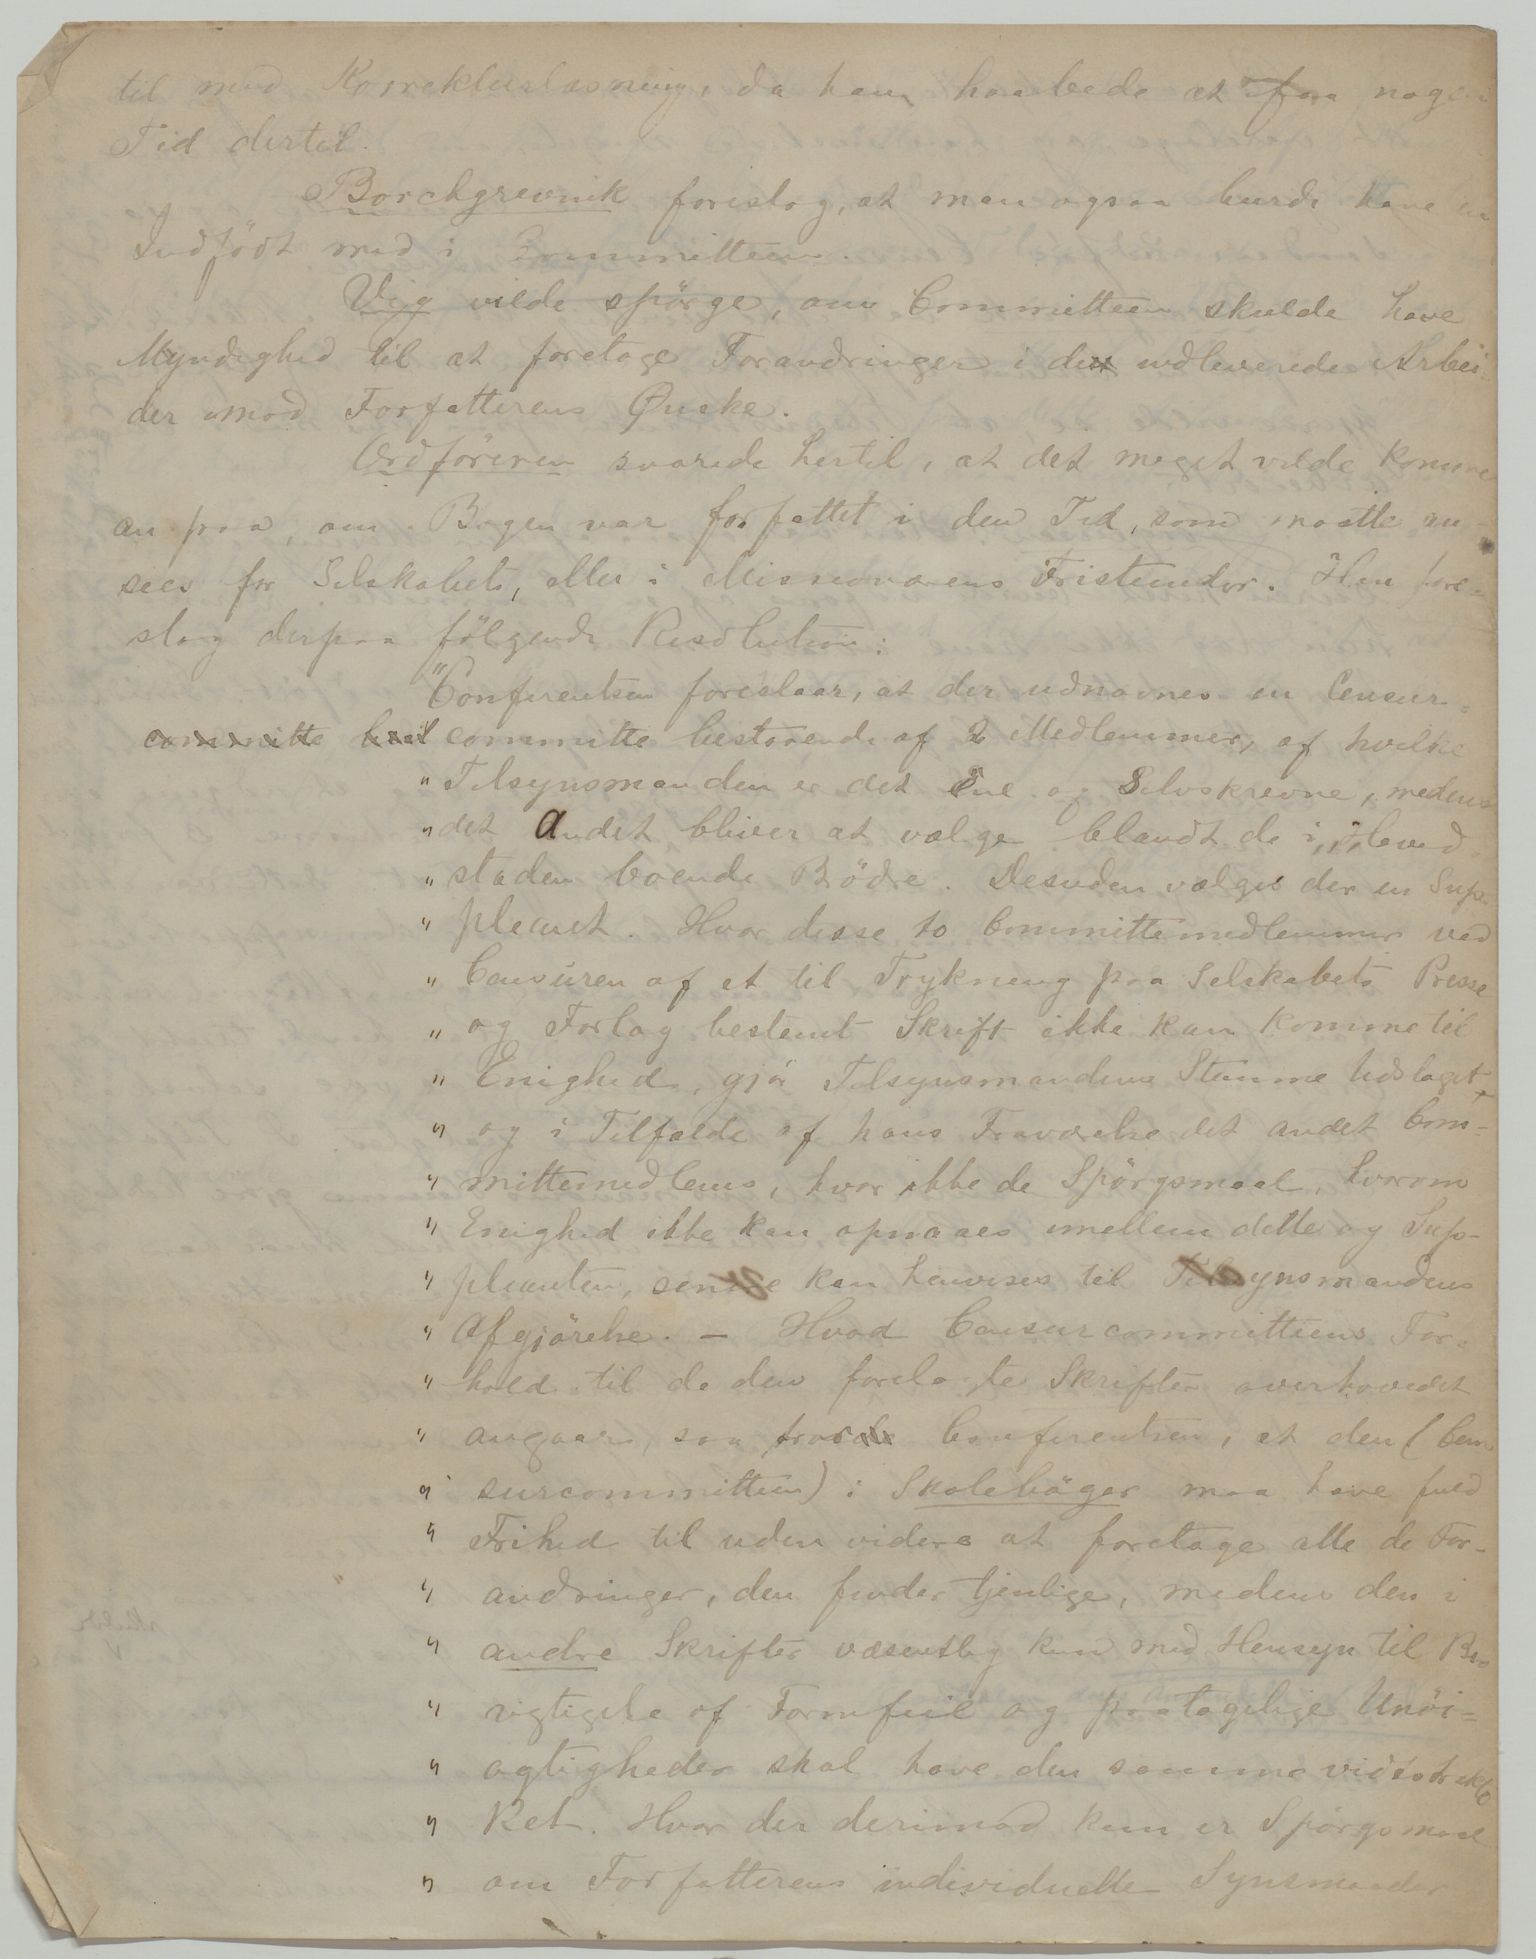 til med Korrekturlæsning, da han haabede at faa nogen
Tid dertil.
Borchgrevnik foreslog, at man ogsaa burde have en
Indfödt med i Committeen.
Vig vilde spörge, om Committeen skulde have
Myndighed til at foretage Forandringer i de udleverede Arbei-
der imod Forfatterens Ønske.
Ordföreren svarede hertil, at det meget vilde komme
an paa, om Bogen var forfattet i den Tid, som maatte an-
sees for Selskabets, eller i Missionærens Fristunder. Han fore-
slog derpaa fölgende Resolution:
"Conferentsen foreslaar, at der udnævnes en Censur-
committe bestaaende af 2 Medlemmer, af hvilke
" Tilsynsmanden er det Ene og Selvskrevne, medens
" det Andet bliver at vælge blandt de i Hoved-
" staden boende Brödre. Desuden vælges der en Sup-
" pleant. Hvor disse to Committemedlemmer ved
" Censuren af et til Trykning paa Selskabets Presse
" og Forlag bestemt Skrift ikke kan komme til
" Enighed, gjör Tilsynsmandens Stemme Udslaget,
" og i Tilfælde af hans Fraværelse det andet Com-
" mittemedlems, hvor ikke de Spörgsmaal, hvorom
" Enighed ikke kan opnaaes imellem dette og Sup-
" pleanten, senere kan henvises til Tilsynsmandens
" Afgjörelse. – Hvad Censurcommitteens For-
" hold til de den forelagte Skrifter overhovedet
" angaar, saa tror Conferentsen, at den (Cen-
" surcommitteen) i Skoleböger maa have fuld
" Frihed til uden videre at foretage alle de For-
" andringer, den finder tjenlige, medens den i
" andre Skrifter væsentlig kun med Hensyn til Be-
" rigtigelse af Formfeil og paatagelige Unöi-
" agtigheder skal have den samme vidtstrakte
" Ret. Hvor der derimod kun er Spörgsmaal
" om Forfatterens individuelle Synsmaader